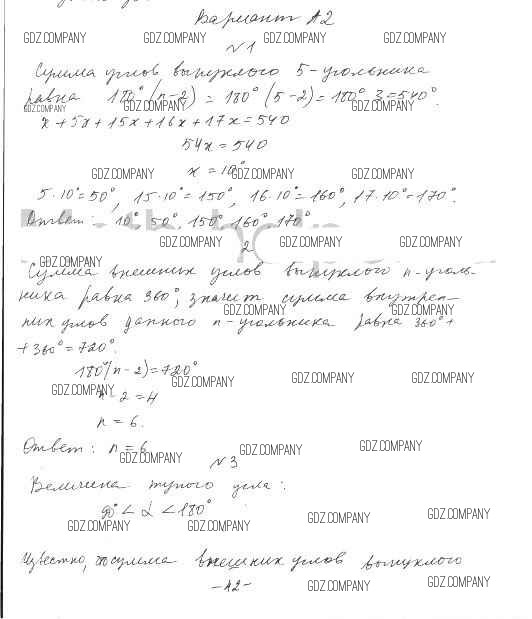 Вариант А2
GDZ.COMPANY GDZ.COMPANY GDZ.COMPANY GDZ.COMPANY
№1
Сумма углов выпуклого 5-угольника
равна 180°(n-2) = 180°(5-2) = 180°·3 = 540°.
GDZ.COMPANY GDZ.COMPANY GDZ.COMPANY
x + 5x + 15x + 16x + 17x = 540
54x = 540
x = 10°
GDZ.COMPANY GDZ.COMPANY GDZ.COMPANY
5·10° = 50°, 15·10° = 150°, 16·10° = 160°, 17·10° = 170°.
Ответ: 10°, 50°, 150°, 160°, 170°
GDZ.COMPANY GDZ.COMPANY GDZ.COMPANY
2
GDZ.COMPANY
Сумма внешних углов выпуклого n-уголь-
ника равна 360°, значит сумма внутрен-
GDZ.COMPANY GDZ.COMPANY
них углов данного n-угольника равна 360° +
+ 360° = 720°.
180°(n-2) = 720°
GDZ.COMPANY GDZ.COMPANY GDZ.COMPANY GDZ.COMPANY
n - 2 = 4
n = 6.
Ответ: n = 6
GDZ.COMPANY GDZ.COMPANY GDZ.COMPANY
№3
Величина тупого угла:
90° < α < 180°
GDZ.COMPANY GDZ.COMPANY GDZ.COMPANY GDZ.COMPANY
Известно, сумма внешних углов выпуклого
-42-
GDZ.COMPANY GDZ.COMPANY